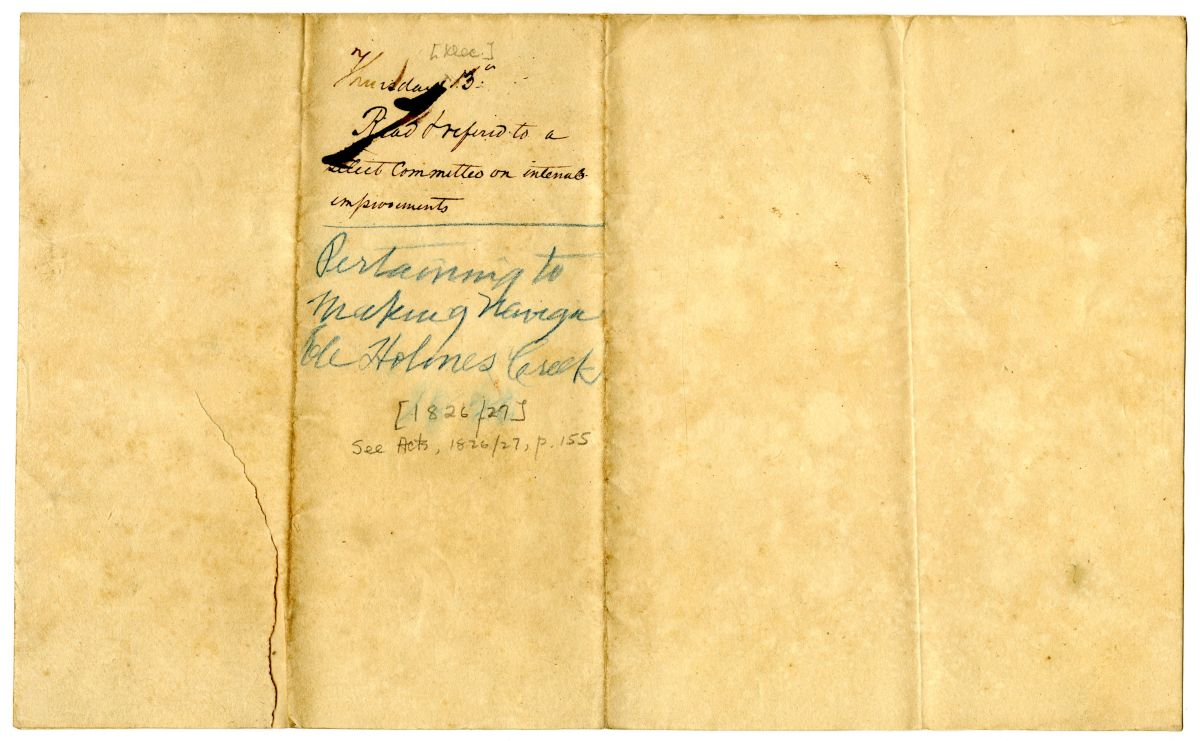 [Dec.]
Thursday 13th
Read & referd to a
select Committee on internal
improvements
Pertaining to
Making Naviga
ble Holmes Creek
[1826/27]
See Acts, 1826/27, p. 155